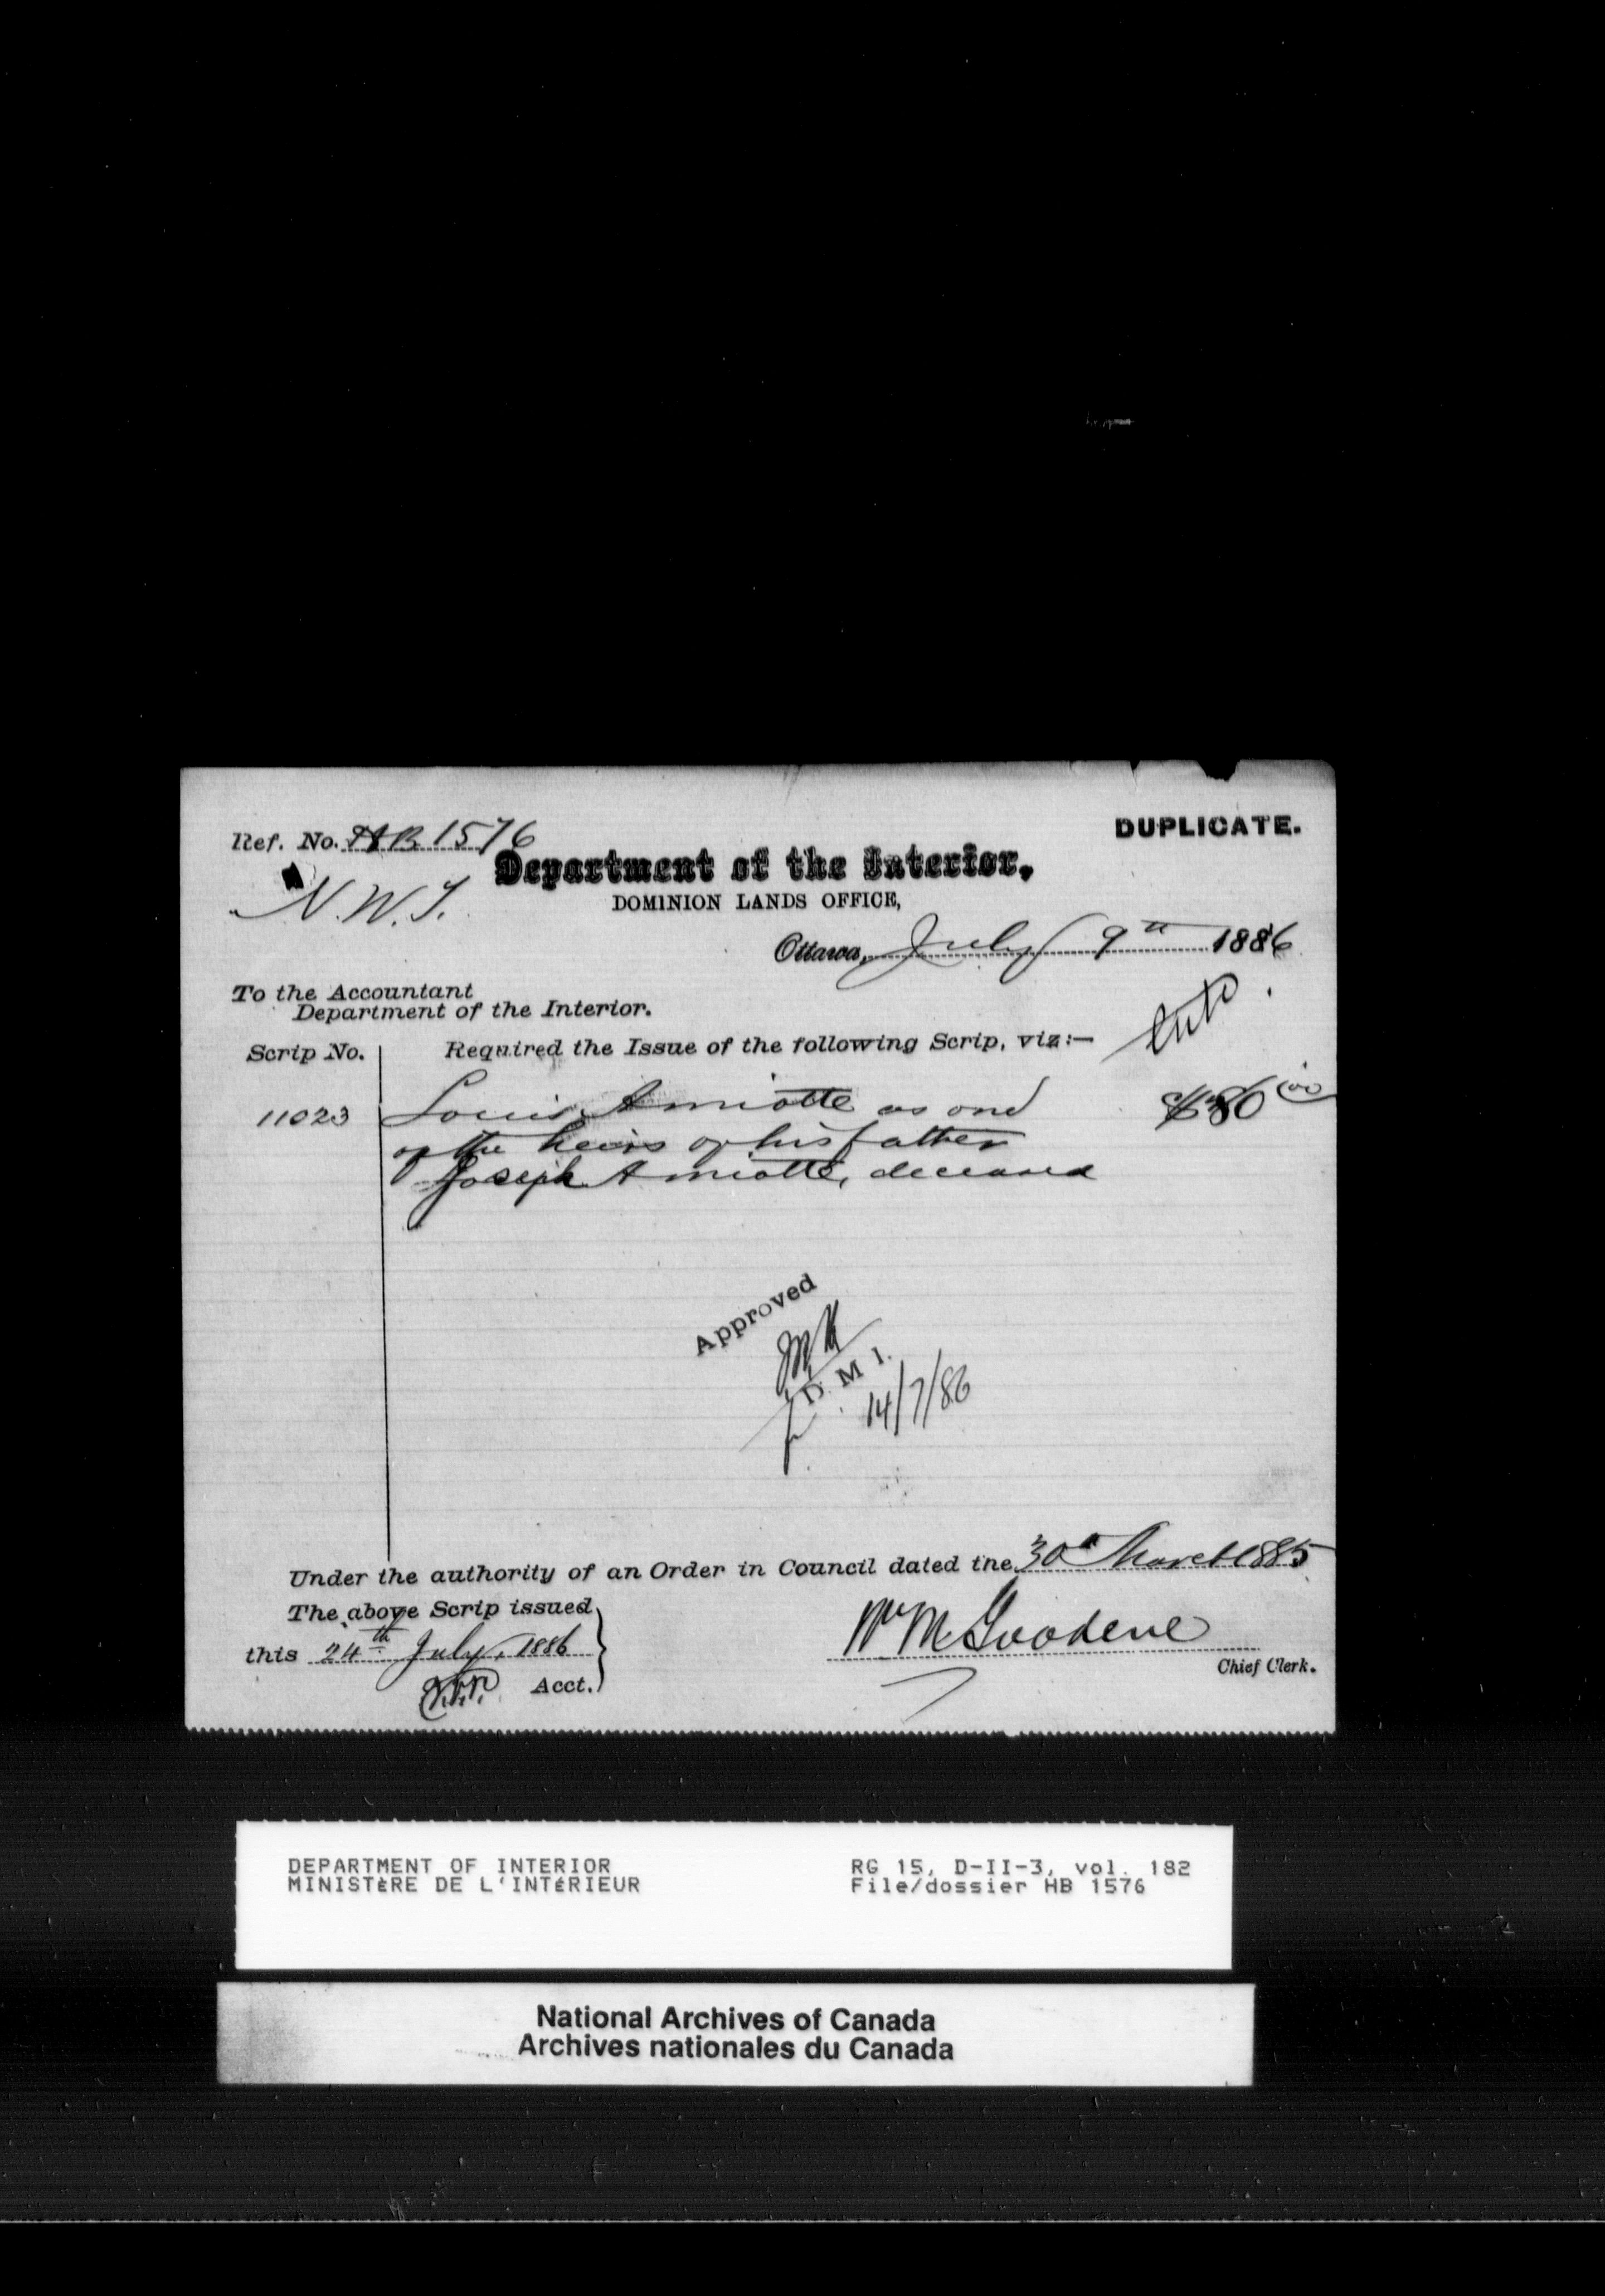 Ref. No. HB 1576
DUPLICATE.
Department of the Interior,
N.W.T.
DOMINION LANDS OFFICE,
Ottawa, July 9th 1886
To the Accountant
Department of the Interior.
Scrip No. Required the Issue of the following Scrip, viz:—
11023 Louis Amiotte as one $80 00
of the heirs of his father
Joseph Amiotte, deceased
Approved
D. M. I.
14/7/86
Under the authority of an Order in Council dated the 30th March 1885
The above Scrip issued
this 24th July, 1886
Acct.
Wm M Goodeve
Chief Clerk.
DEPARTMENT OF INTERIOR
MINISTÈRE DE L'INTÉRIEUR
RG 15, D-II-3, vol. 182
File/dossier HB 1576
National Archives of Canada
Archives nationales du Canada